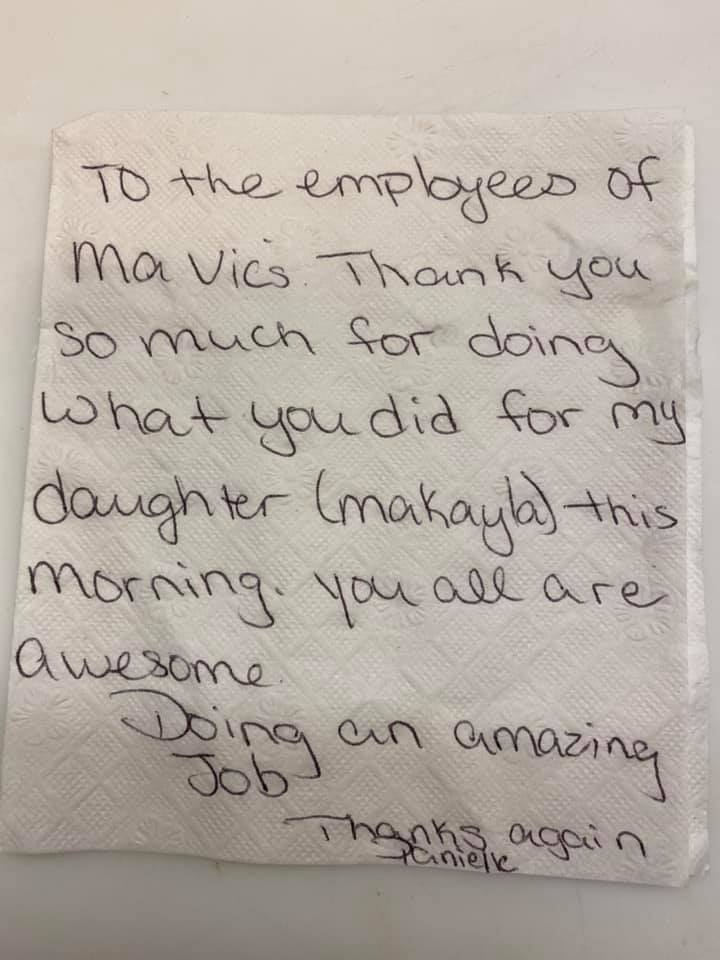 To the employees of
Ma Vic's. Thank you
so much for doing
what you did for my
daughter (makayla) this
morning. you all are
awesome.
Doing an amazing
Job
Thanks again
Danielle